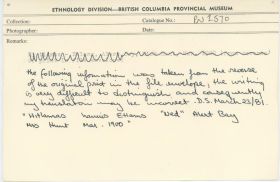 ETHNOLOGY DIVISION—BRITISH COLUMBIA PROVINCIAL MUSEUM
Collection: Catalogue No.: PN 1570
Photographer: Date:
Remarks:
the following information was taken from the reverse
of the original print in the file envelope; the writing
is very difficult to distinguish and consequently
my translation may be incorrect - D.S. March 23/81.
"Hitlamas Ethams "Ned" Alert Bay
Mrs Hunt Mar. 1900"